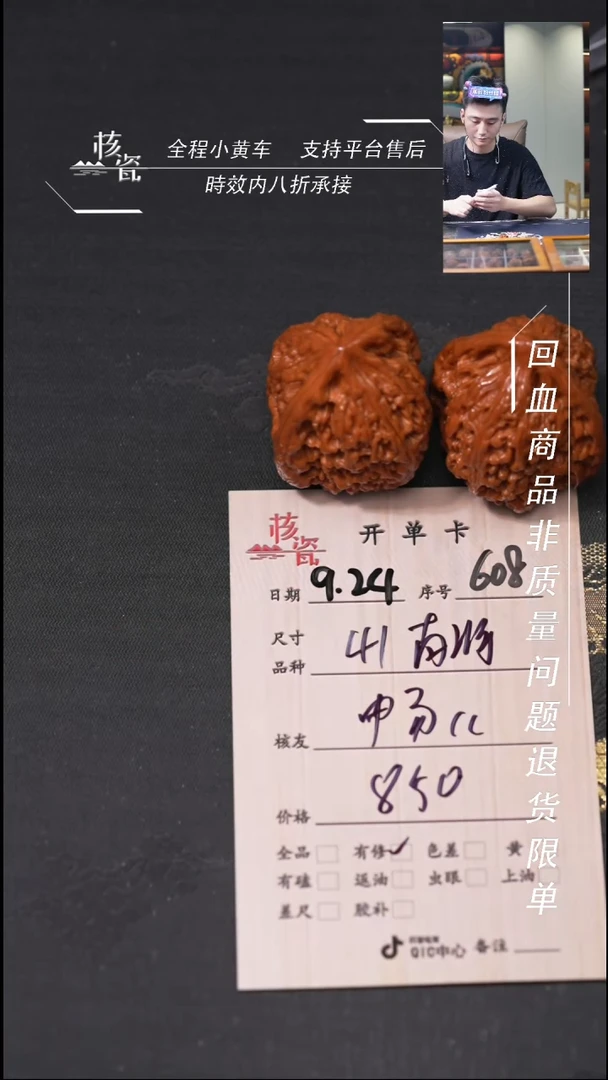 核瓷
全程小黄车 支持平台售后
時效内八折承接
回血商品非质量问题退货限单
核瓷
开单卡
日期 9.24 序号 608
尺寸
品种 41
核友
价格 850
全品 有修✓ 色差 黄
有磕 返油 虫眼 上油
差尺 胶补
QIC中心 备注